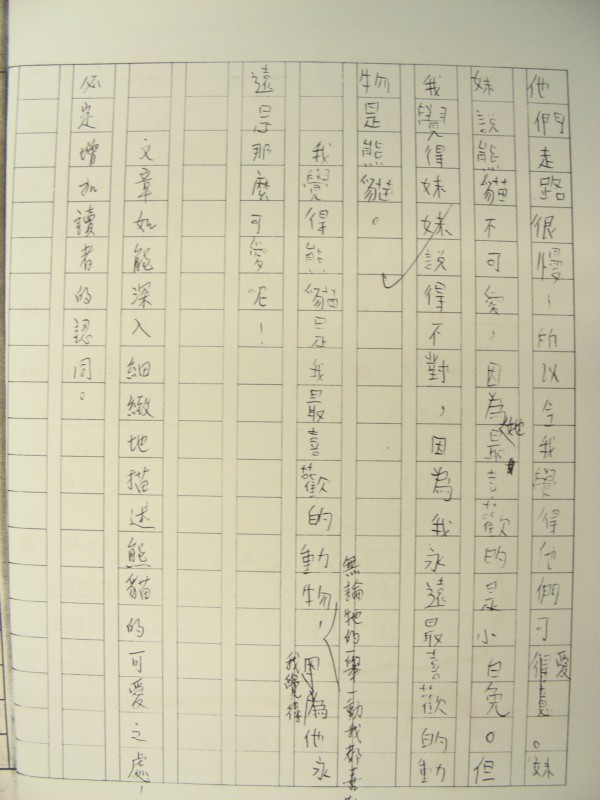 他們走路很慢，所以令我覺得他們可愛得意。妹
妹說熊貓不可愛，因為最喜歡的是小白兔。但
她
我覺得妹妹說得不對，因為我永遠最喜歡的動
物是熊貓。
無論牠的一舉一動我都喜
我覺得熊貓是我最喜歡的動物，因為他永
我覺得
遠是那麼可愛呢！
文章如能深入細緻地描述熊貓的可愛之處，
必定增加讀者的認同。